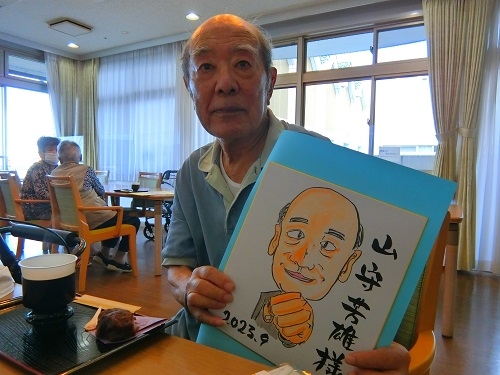 山守芳雄様
2023.9